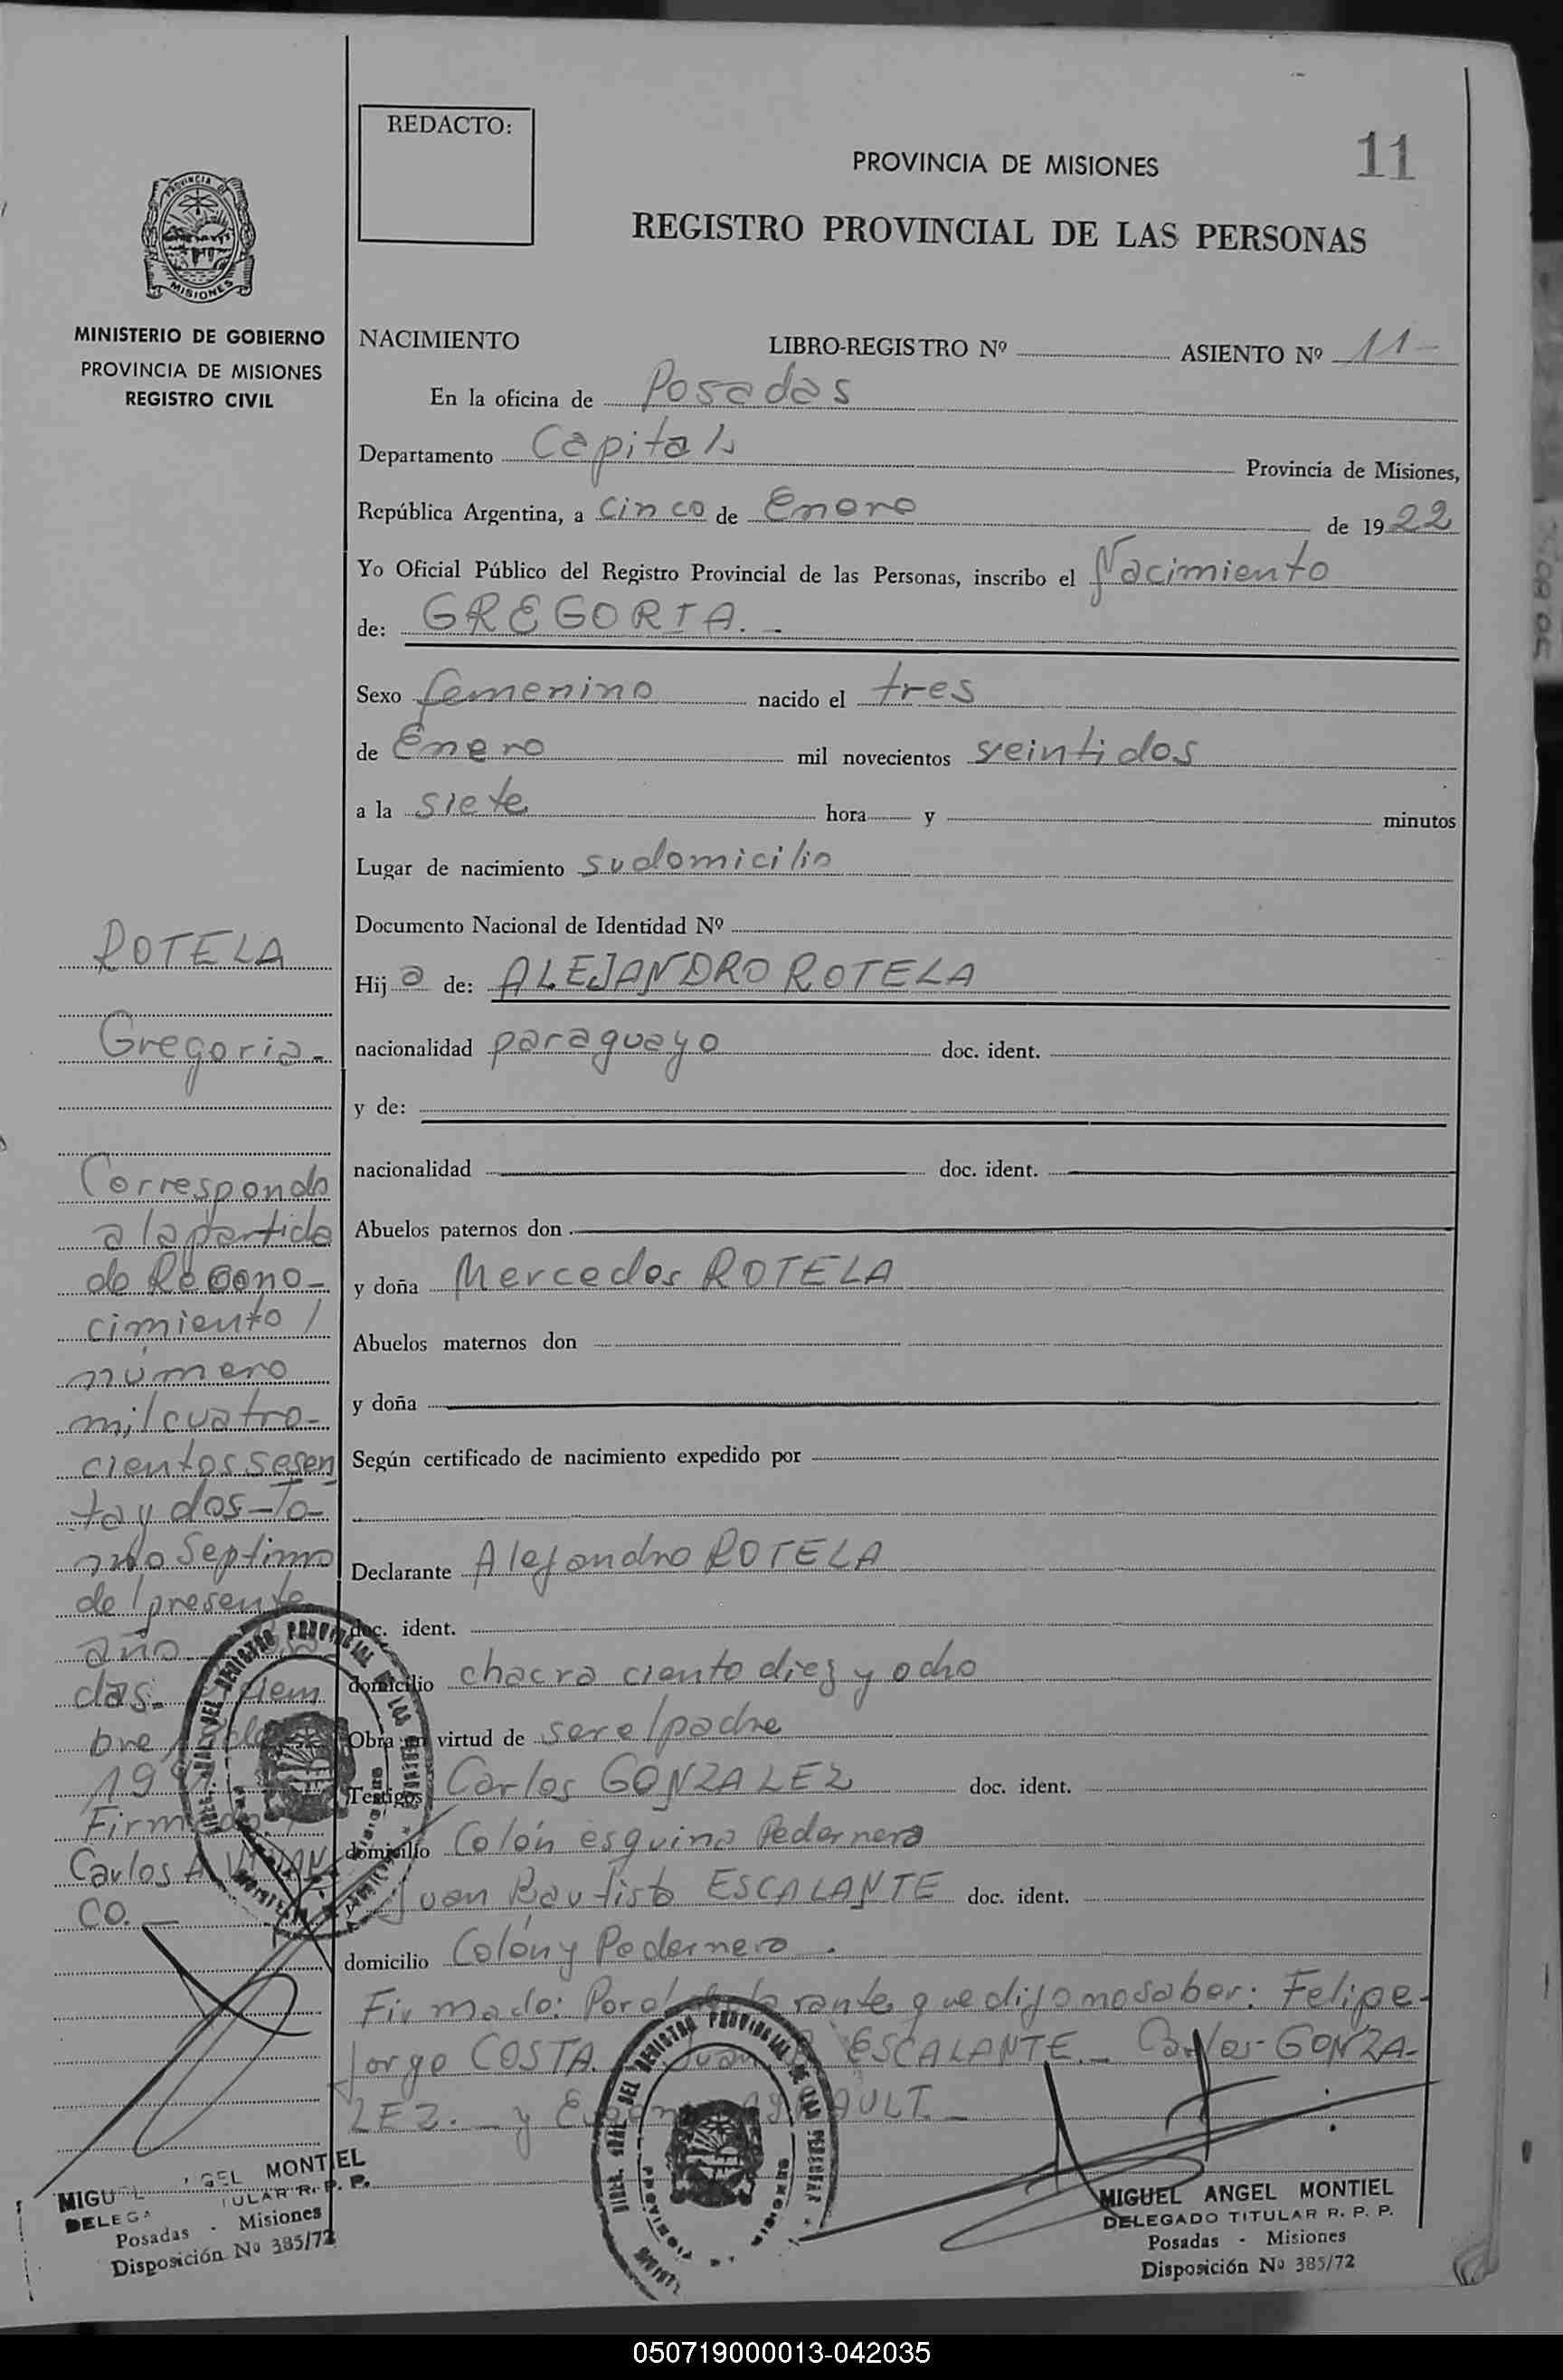 REDACTO:
PROVINCIA DE MISIONES
11
REGISTRO PROVINCIAL DE LAS PERSONAS
PROVINCIA DE
MISIONES
MINISTERIO DE GOBIERNO
PROVINCIA DE MISIONES
REGISTRO CIVIL
NACIMIENTO LIBRO-REGISTRO Nº ASIENTO Nº 11-
En la oficina de Posadas
Departamento Capital Provincia de Misiones,
República Argentina, a cinco de Enero de 1922
Yo Oficial Público del Registro Provincial de las Personas, inscribo el Nacimiento
de: GREGORIA. -
Sexo femenino nacido el tres
de Enero mil novecientos veintidos
a la siete hora y minutos
Lugar de nacimiento su domicilio
Documento Nacional de Identidad Nº
Hija de: ALEJANDRO ROTELA
nacionalidad paraguayo doc. ident.
y de:
nacionalidad doc. ident.
Abuelos paternos don
y doña Mercedes ROTELA
Abuelos maternos don
y doña
Según certificado de nacimiento expedido por
Declarante Alejandro ROTELA
doc. ident.
domicilio chacra ciento diez y ocho
Obra en virtud de ser el padre
Testigos Carlos GONZALEZ doc. ident.
domicilio Colón esquina Pedernera
Juan Bautista ESCALANTE doc. ident.
domicilio Colón y Pedernera.
Firmado: Por el declarante que dijo no saber: Felipe
Jorge COSTA. Juan ESCALANTE.- Carlos GONZA-
LEZ.- y
ROTELA
Gregoria-
Corresponde
a la partida
de Recono-
cimiento /
número
mil cuatro-
cientos sesen
ta y dos-To-
mo Septimo
del presente
año.
das.-
bre
19
Firmado
Carlos A. VIVAN
CO.-
MIGUEL ANGEL MONTIEL
DELEGADO TITULAR R. P. P.
Posadas - Misiones
Disposición Nº 385/72
MIGUEL ANGEL MONTIEL
DELEGADO TITULAR R. P. P.
Posadas - Misiones
Disposición Nº 385/72
050719000013-042035